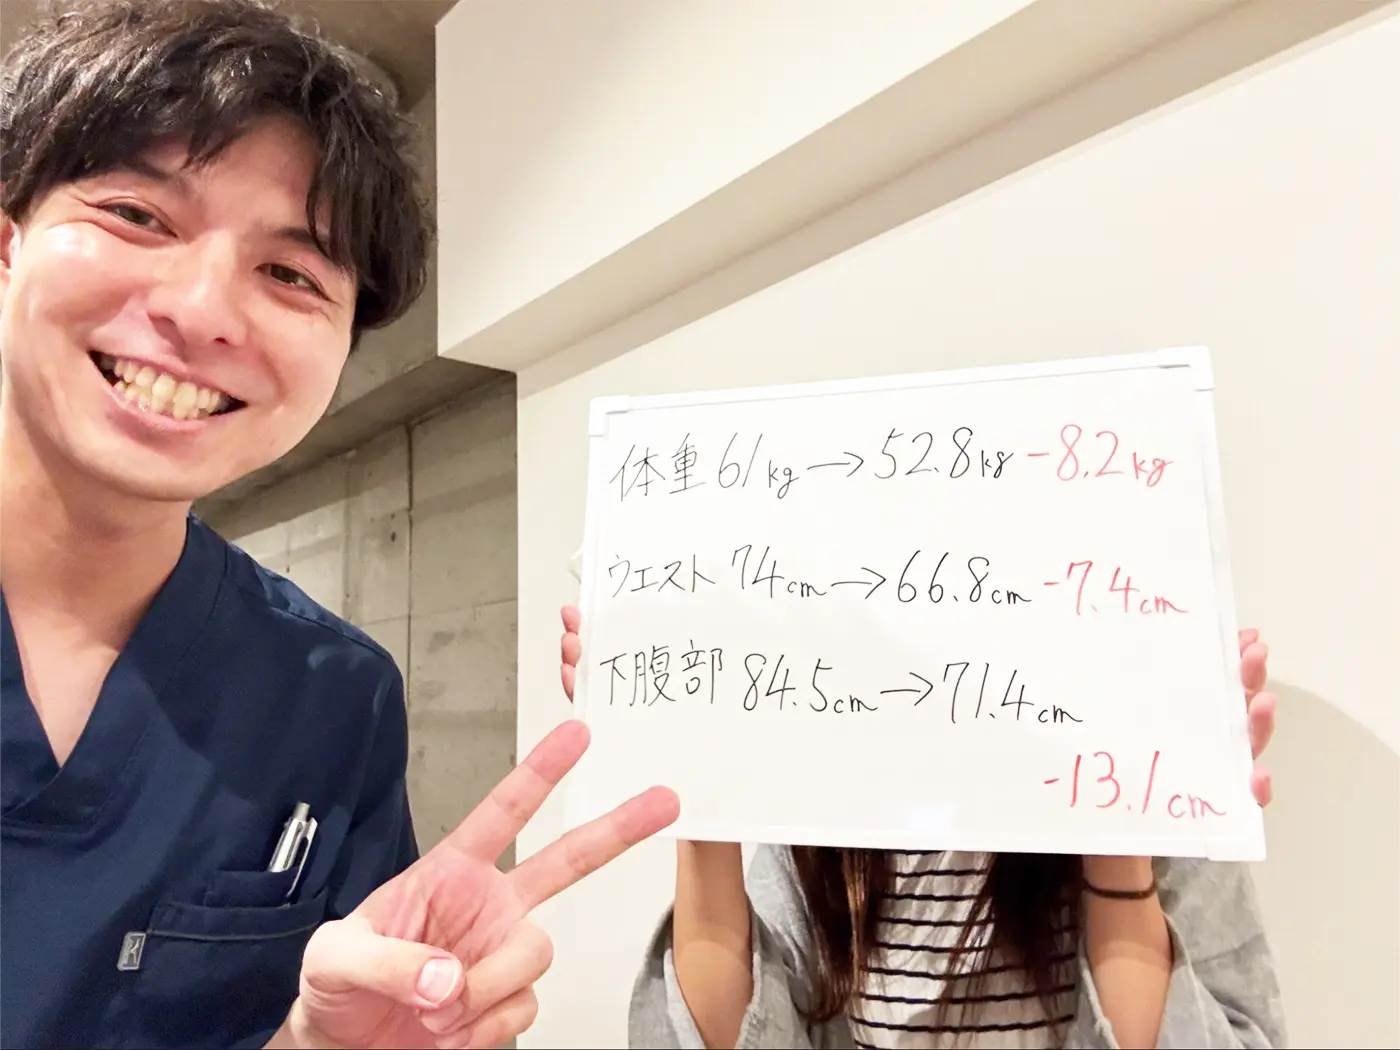 体重 61kg→52.8kg -8.2kg
ウエスト 74cm→66.8cm -7.4cm
下腹部 84.5cm→71.4cm
-13.1cm